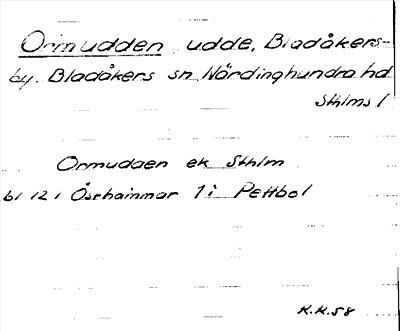 Ormudden udde, Bladåkers-
by. Bladåkers sn Närdinghundra hd
Sthlms l
Ormudden ek Sthlm
bl 12 i Österhammar 1 i Pettbol
K.K.58